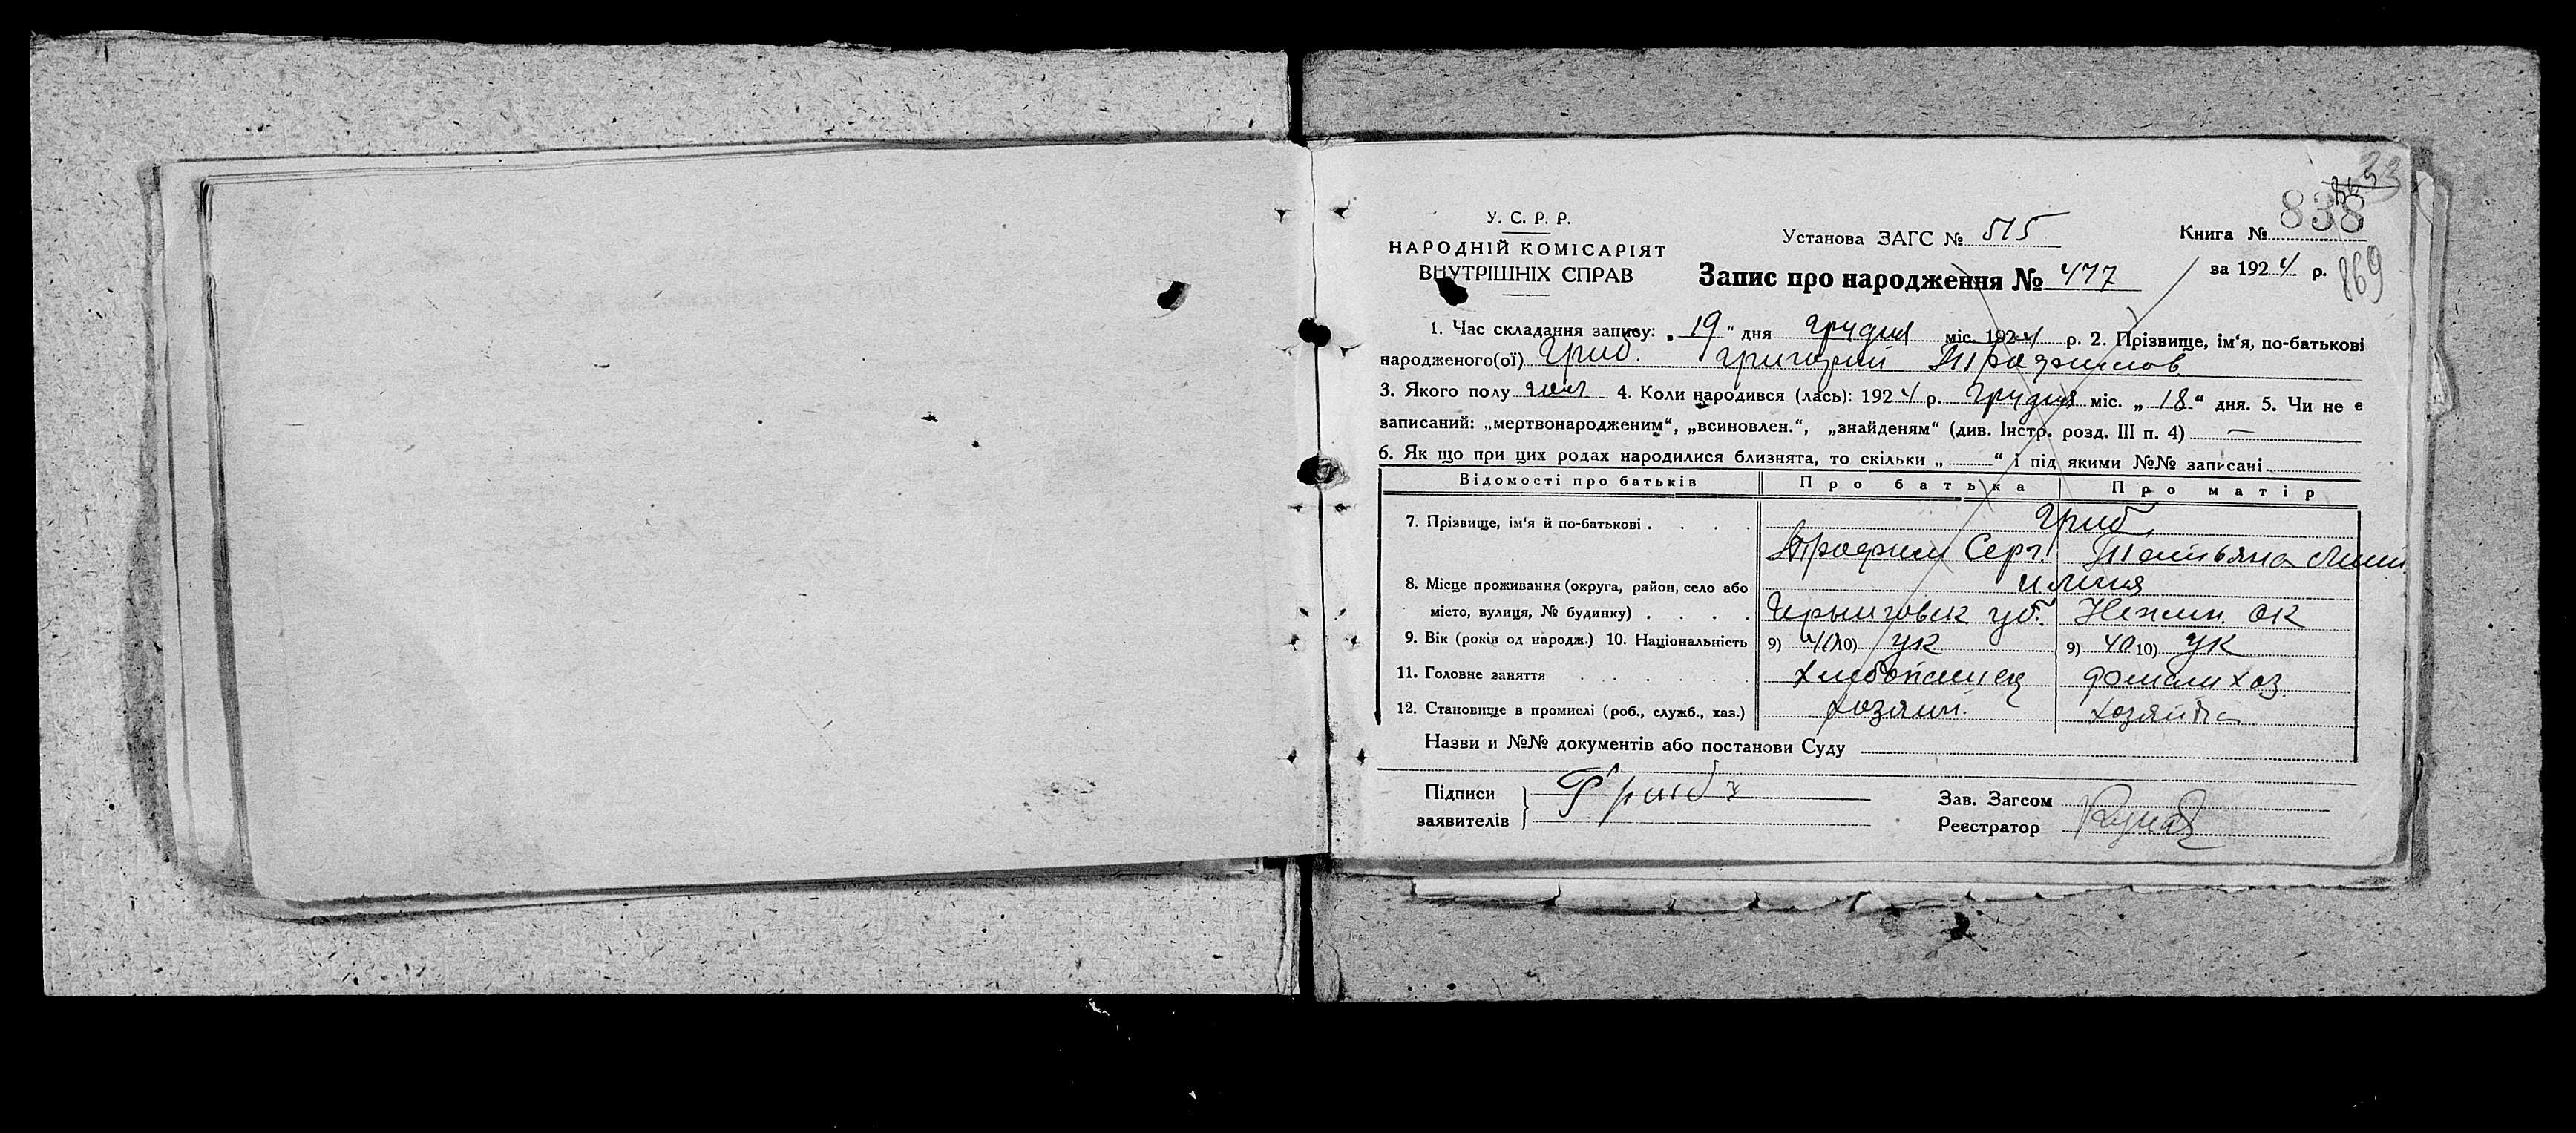 33
838
У. С. Р. Р.
НАРОДНІЙ КОМІСАРІЯТ
ВНУТРІШНІХ СПРАВ
Установа ЗАГС № 515
Книга №
Запис про народження № 477
за 1924 р.
869
1. Час складання запису: „19“ дня грудня міс. 1924 р. 2. Прізвище, ім‘я, по-батькові
народженого(ої) Гриб. Григорий Трофимов
3. Якого полу чол 4. Коли народився (лась): 1924 р. Грудня міс. „18“ дня. 5. Чи не є
записаний: „мертвонародженим“, „всиновлен.“, „знайденям“ (див. Інстр. розд. III п. 4) —
6. Як що при цих родах народилися близнята, то скільки „ “ і під якими №№ записані
Відомості про батьків Про батька Про матір
7. Прізвище, ім‘я й по-батькові . . . . Гриб
Трофим Серг. Татьяна
8. Місце проживання (округа, район, село або
місто, вулиця, № будинку) . . . . Черниговск губ. Нежин. ок
9. Вік (років од народж.) 10. Національність 9) 40 10) ук 9) 40 10) ук
11. Головне заняття . . . . . . Хлибопашец домаш хоз.
12. Становище в промислі (роб., служб., хаз.) хозяин. хозяйка
Назви и №№ документів або постанови Суду
Підписи
заявителів } Грибъ
Зав. Загсом
Реєстратор